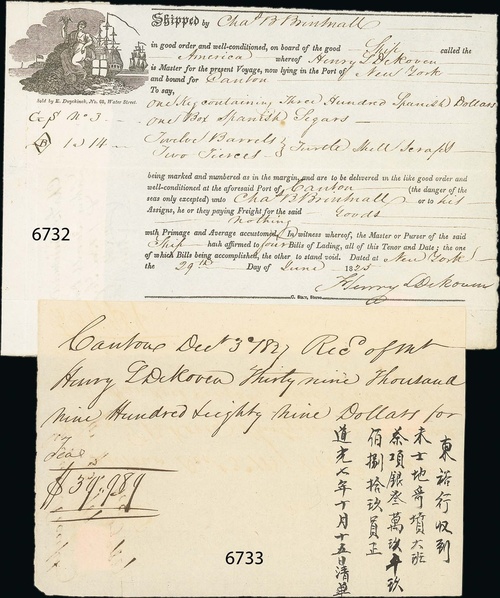 Shipped by Chas B Brintnall
in good order and well-conditioned, on board of the good Ship called the
America whereof Henry L DeKoven
is Master for the present Voyage, now lying in the Port of New York
and bound for Canton
To say,
one Keg containing Three Hundred Spanish Dollars
one Box Spanish Segars
Twelve Barrels
Two Tierces } Turtle Shell Scraps
being marked and numbered as in the margin, and are to be delivered in the like good order and
well-conditioned at the aforesaid Port of Canton (the danger of
the seas only excepted) unto Chas B Brintnall or to his
Assigns, he or they paying Freight for the said Goods
nothing
with Primage and Average accustomed. In witness whereof, the Master or Purser of the said
Ship hath affirmed to four Bills of Lading, all of this Tenor and Date; the one
of which Bills being accomplished, the other to stand void. Dated at New York
the 29th Day of June 1825
Henry L DeKoven
Sold by E. Duyckinck, No. 68, Water Street.
No 3
1 a 14
6732
Canton Decr 3d 1827 Recd of Mr
Henry L DeKoven Thirty nine Thousand
nine Hundred & Eighty nine Dollars for
Teas
$39,989
東裕行收到
未士地哥墳大班
茶項銀叁萬玖千玖
佰捌拾玖員正
道光七年十月十五日清單
6733